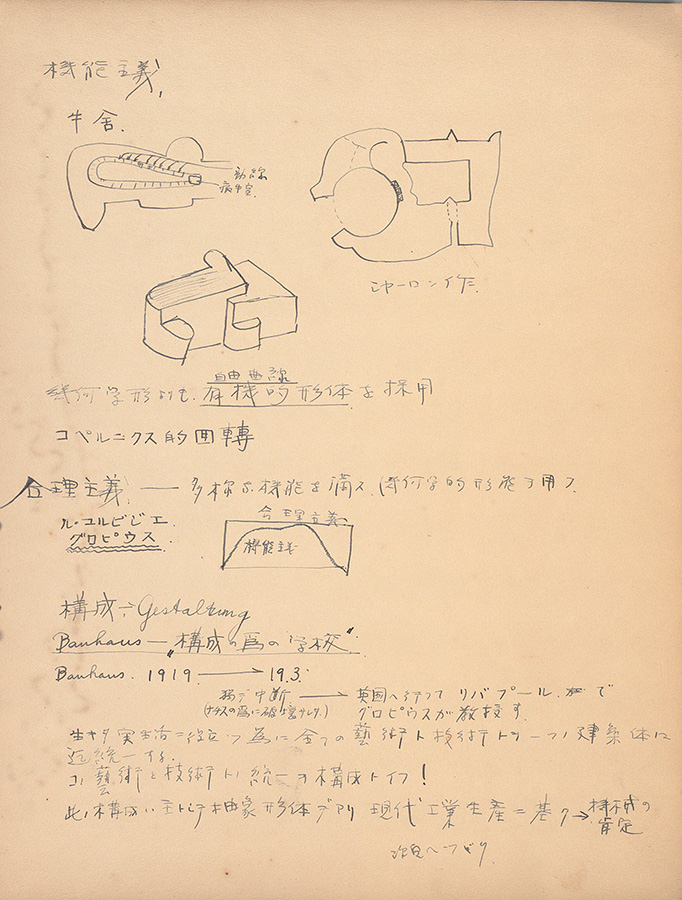 機能主義,
牛舎.
動線
シャーロン作.
自由曲線
幾何学形よりも 有機的形体を採用
コペルニクス的回轉
合理主義 — 多様な機能を満ス 幾何学的形態ヲ用フ
ル・コルビジエ.
グロピウス.
合理主義
機能主義
構成÷Gestaltung
Bauhaus—"構成ノ為の学校".
Bauhaus. 1919 → 19.3.
中断 → 英国へ行つて リバプール. で
(ナチスの為に破壊サレタ.) グロピウスが教授す.
生キタ実生活ニ役立ツ為に全ての藝術ト技術トヲ一つノ建築体に
迄統一する.
コノ藝術と技術トノ統一ヲ構成トイフ!
此ノ構成ハ主トシテ抽象形体デアリ 現代工業生産ニ基ク→機械の
肯定
次頁へつゞく